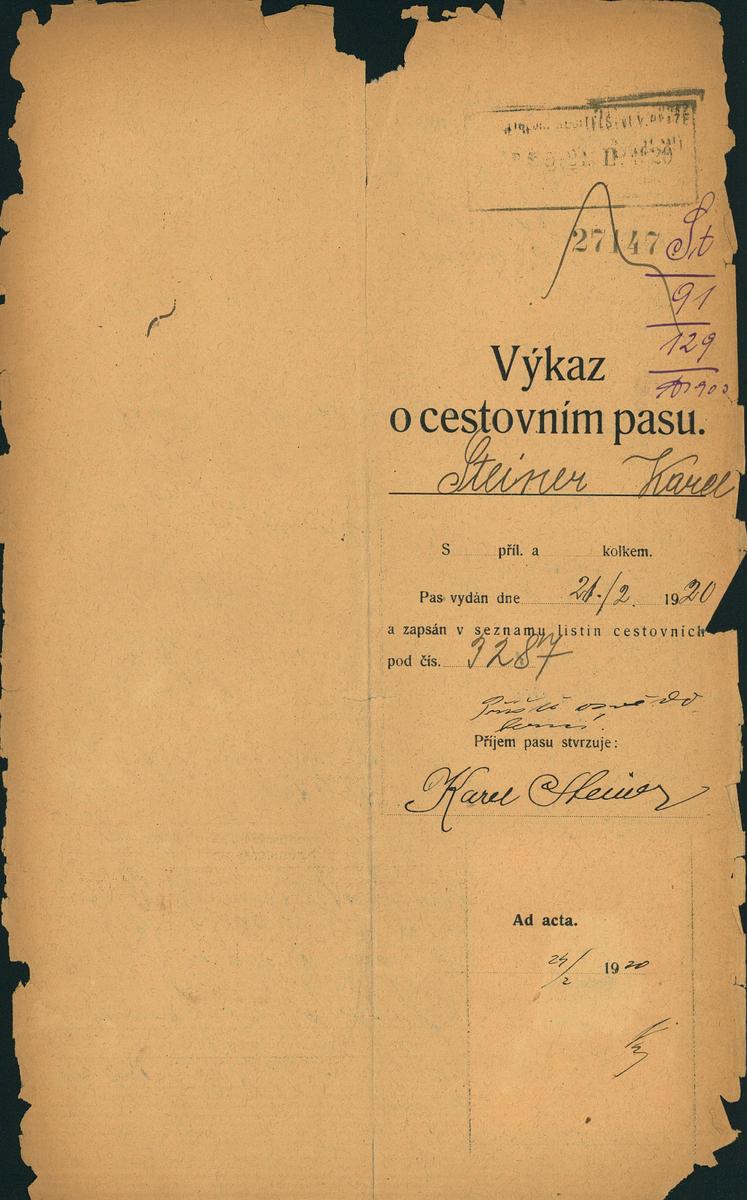 27147
Št
91
129
Výkaz
o cestovním pasu.
Steiner Karel
S příl. a kolkem.
Pas vydán dne 21./2. 1920
a zapsán v seznamu listin cestovních
pod čís. 3287
Příjem pasu stvrzuje:
Karel Steiner
Ad acta.
24/2 1920